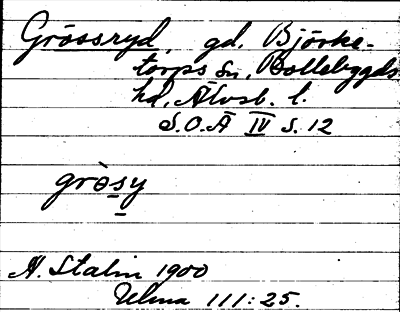 Grössryd, gd. Björke-
torps sn, Bollebygds
hd, Älvsb. l.
S.O.Ä IV S. 12
gròsy
H. Stalin 1900
Ulma 111:25.